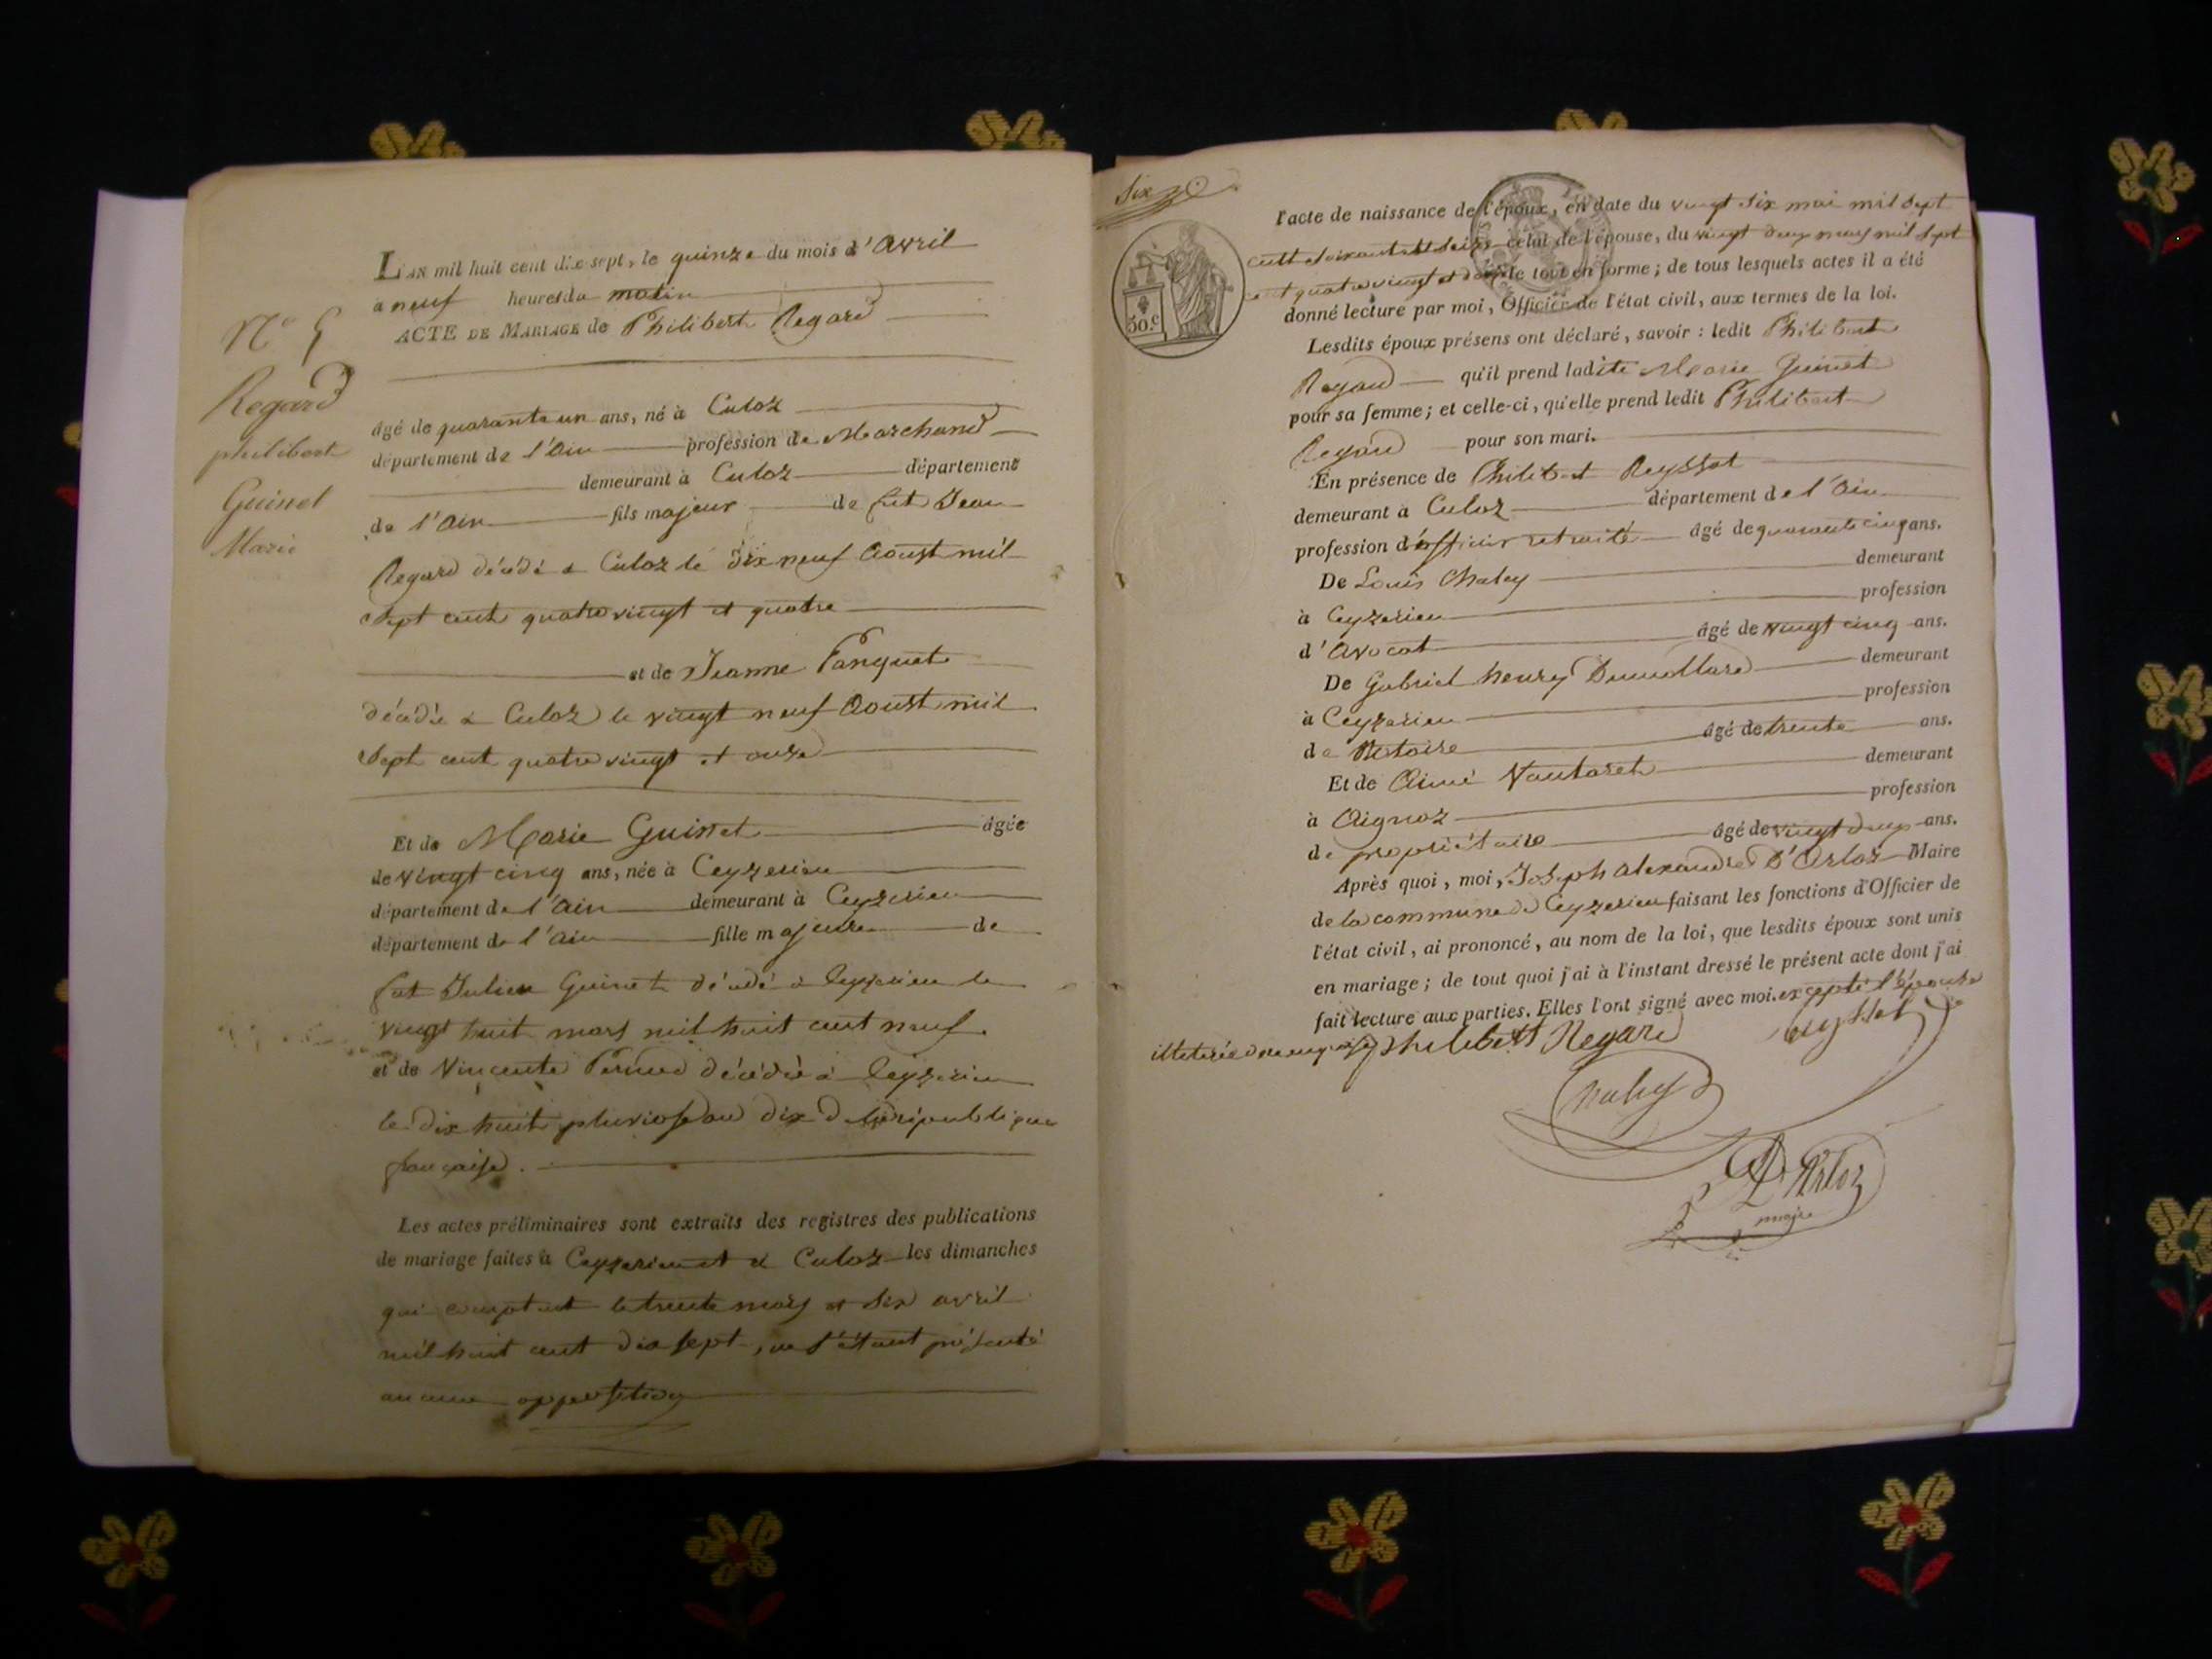 L'AN mil huit cent dix sept, le quinze du mois d'avril
à neuf heures du matin
ACTE DE MARIAGE de Philibert Regard
N° 5
Regard
philibert
Guinet
Marie
âgé de quarante un ans, né à Culoz
département de l'Ain profession de Marchand
demeurant à Culoz département
de l'Ain fils majeur de fut Jean
Regard décédé à Culoz le dix neuf Aoust mil
Sept cent quatre vingt et quatre
et de Jeanne Panquet
décédée à Culoz le vingt neuf Aoust mil
Sept cent quatre vingt et onze
Et de Marie Guinet âgée
de vingt cinq ans, née à Ceyzerieu
département de l'Ain demeurant à Ceyzerieu
département de l'Ain fille majeure de
fut Julien Guinet décédé à Ceyzerieu le
vingt huit mars mil huit cent neuf
et de Vincente décédée à Ceyzerieu
le dix huit pluviose an dix de la république
française.
Les actes préliminaires sont extraits des registres des publications
de mariage faites à Ceyzerieu et à Culoz les dimanches
qui comptent le trente mars et six avril
mil huit cent dix sept, ne s'étant présenté
aucune opposition
Six
30.c
l'acte de naissance de l'époux, en date du vingt six mai mil sept
cent soixante et seize celui de l'épouse, du vingt deux mars mil sept
cent quatre vingt et le tout en forme; de tous lesquels actes il a été
donné lecture par moi, Officier de l'état civil, aux termes de la loi.
Lesdits époux présens ont déclaré, savoir : ledit Philibert
Regard qu'il prend ladite Marie Guinet
pour sa femme; et celle-ci, qu'elle prend ledit Philibert
Regard pour son mari.
En présence de Philibert Reyssat
demeurant à Culoz département de l'Ain
profession d'officier retraité âgé de quarante cinq ans.
De Louis Chaley demeurant
à Ceyzerieu profession
d'Avocat âgé de vingt cinq ans.
De Gabriel henry Dumollard demeurant
à Ceyzerieu profession
de Notoire âgé de trente ans.
Et de Aimé Vautaret demeurant
à Aignoz profession
de propriétaire âgé de vingt deux ans.
Après quoi, moi, Joseph alexandre D'Arloz Maire
de la commune de Ceyzerieu faisant les fonctions d'Officier de
l'état civil, ai prononcé, au nom de la loi, que lesdits époux sont unis
en mariage; de tout quoi j'ai à l'instant dressé le présent acte dont j'ai
fait lecture aux parties. Elles l'ont signé avec moi. excepté l'épouse
philibert Regard
Chaley
D'Arloz
maire